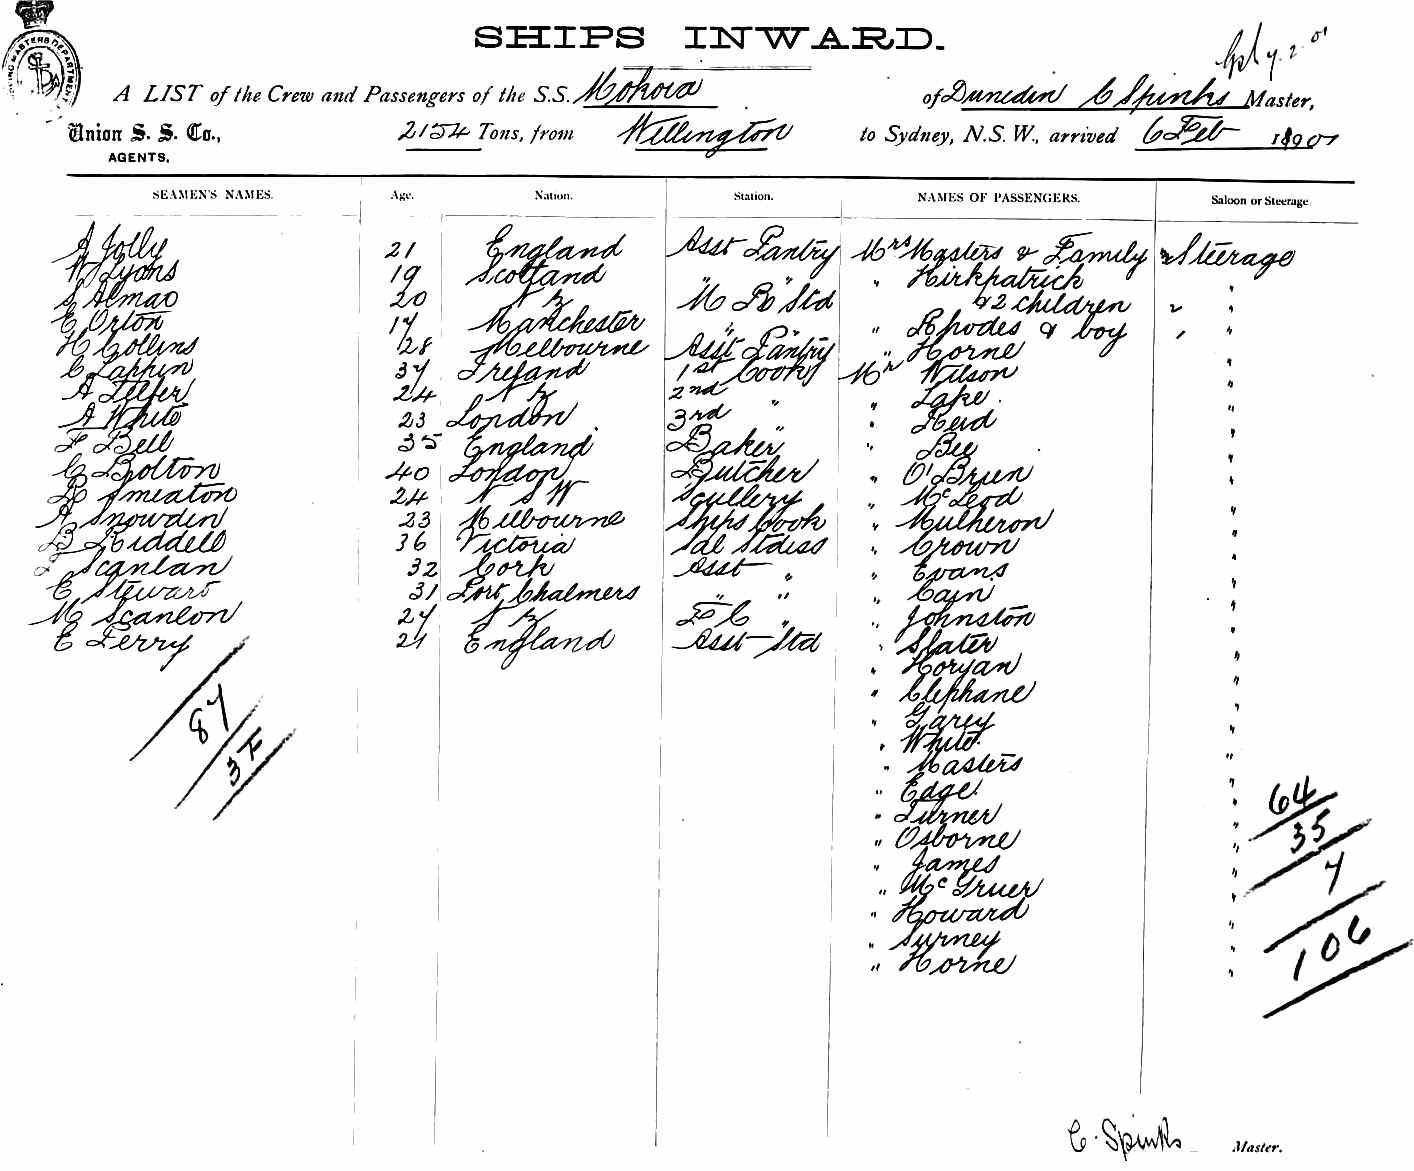 SHIPS INWARD.
A LIST of the Crew and Passengers of the S.S. Mokoia of Dunedin C Spinks Master,
Union S. S. Co., 2154 Tons, from Wellington to Sydney, N.S.W., arrived 6 Feb 1901
AGENTS,
SEAMEN'S NAMES. Age. Nation. Station. NAMES OF PASSENGERS. Saloon or Steerage
A Jolly 21 England Asst Pantry Mrs Masters & Family Steerage
W Lyons 19 Scotland " " " Kirkpatrick "
S Almao 20 N Z M R Std & 2 children " "
E Orton 17 Manchester " " " Rhodes & boy " "
H Collins 28 Melbourne Asst Pantry " Horne "
C Lappin 37 Ireland 1st Cook Mr Wilson "
A Telfer 24 N Z 2nd " " Lake "
A White 23 London 3rd " " Reid "
F Bell 35 England Baker " Bee "
C Bolton 40 London Butcher " O'Brien "
Smeaton 24 N S W Scullery " McLeod "
A Snowden 23 Melbourne Ships Cook " Mulheron "
Riddell 36 Victoria Sal Stdess " Crown "
Scanlan 32 Cork Asst " " Evans "
C Stewart 31 Port Chalmers " " " Cain "
M Scanlon 27 N Z F C " " Johnston "
E Perry 21 England Asst Std " Slater "
" Horgan "
" Clephane "
" Garey "
" White "
" Masters "
87
3F
" Edge "
" Turner "
" Osborne "
" James "
" McGruer "
" Howard "
" Surney "
" Horne "
64
35
7
106
C. Spinks Master.